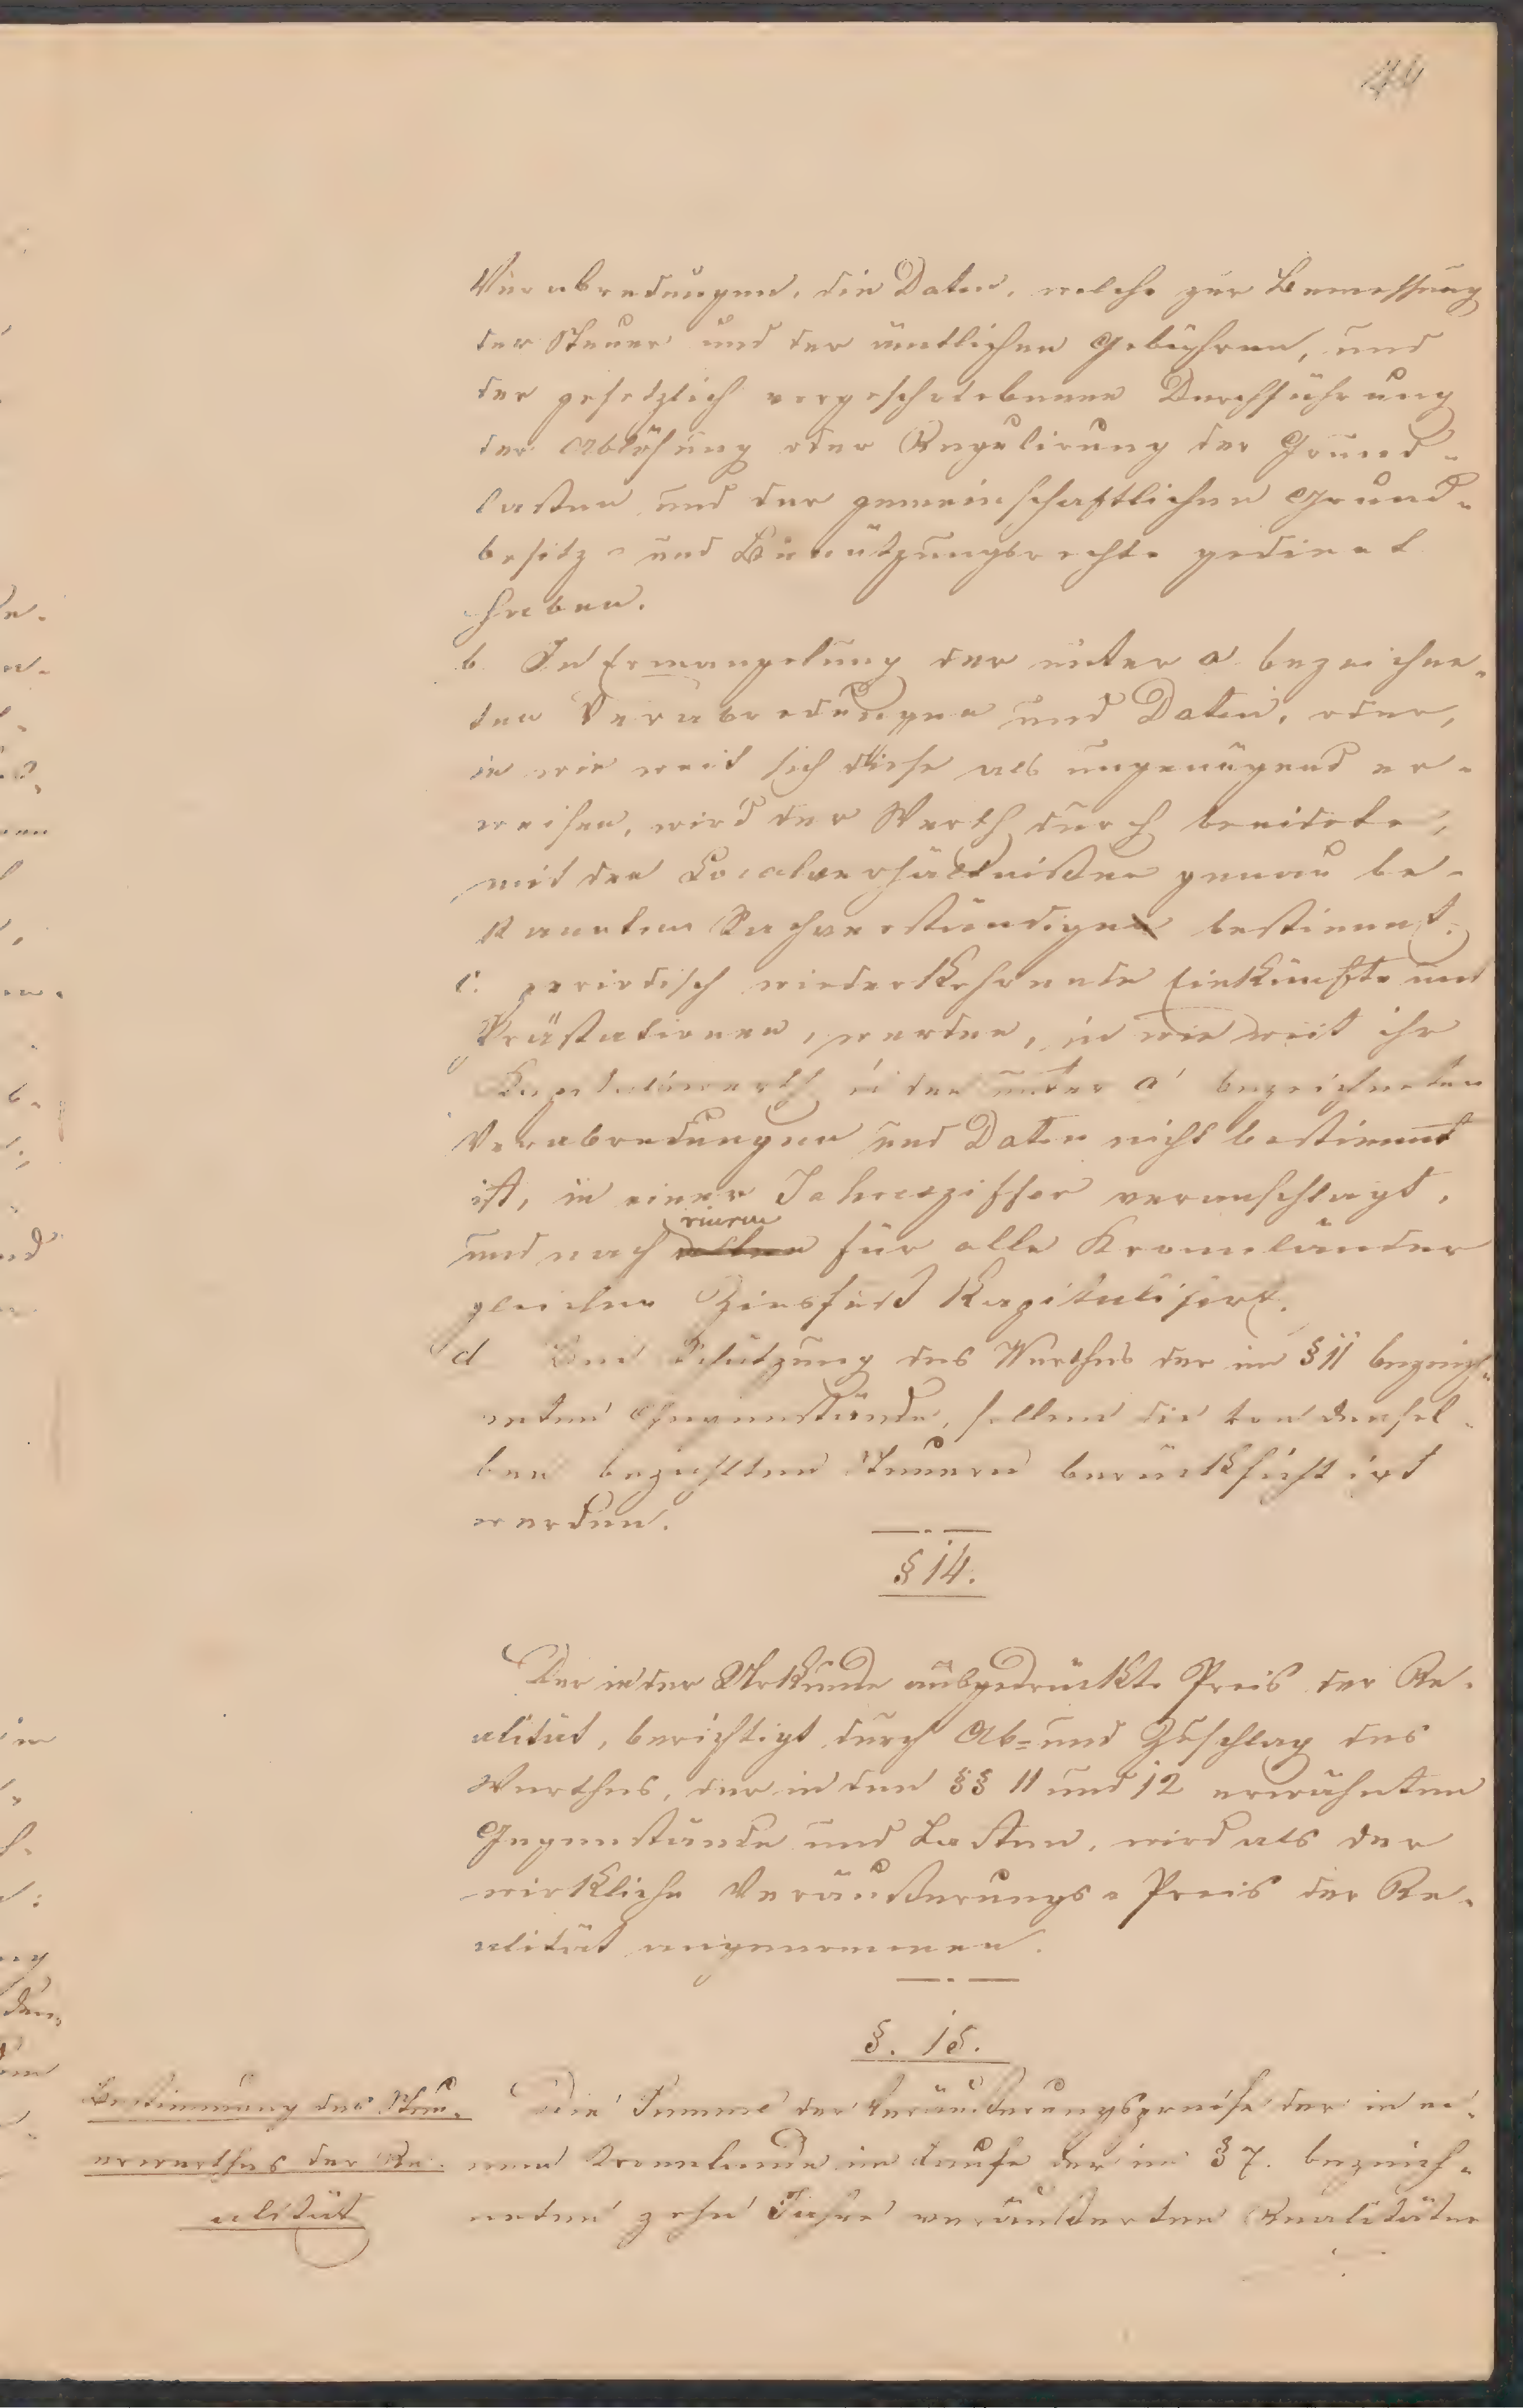 44
Verabredungen, die Daten, welche zur Bemessung
der Steuer und der ämtlichen Gebühren, und
der gesetzlich vorgeschriebenen Durchführung
der Ablösung oder Regulirung der Grund-
lasten und der gemeinschaftlichen Grund-
besitz- und Benützungsrechte gedient
haben.
b In Ermangelung der unter a bezeichne-
ten Verabredungen und Daten, oder,
in wie weit sich diese als ungenügend er-
weisen, wird der Werth durch beeidete,
mit den Localverhältnißen genau be-
kannten Sachverständigen bestimmt.
c. periodisch wiederkehrende Einkünfte und
Prästationen, werden, in wie weit ihr
Kapitalswerth in den unter a bezeichneten
Verabredungen und Daten nicht bestimmt
ist, in einer Jahresziffer veranschlagt,
und nach einem für alle Kronländer
gleichen Zinsfuß kapitalisirt.
d Bei Schätzung des Werthes der im § 11 bezeich-
neten Gegenstände, sollen die von densel-
ben bezahlten Steuern berücksichtigt
werden.
§ 14.
Der in der Urkunde ausgedrückte Preis der Re-
alität, berichtigt durch Ab- und Zuschlag des
Werthes, der in den §§ 11 und 12 erwähnten
Gegenstände und Lasten, wird als der
wirkliche Veräußerungs-Preis der Re-
alität angenommen.
§. 15.
Bestimmung des Steu-
erwerthes der Re-
alität
Die Summe der Veräußerungspreise der in ei-
nem Kronlande im Laufe der im § 7. bezeich-
neten zehn Jahre veräußerten Realitäten